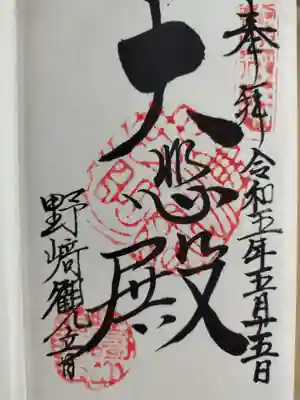 奉拝
令和五年五月廿五日
大悲殿
野﨑観音